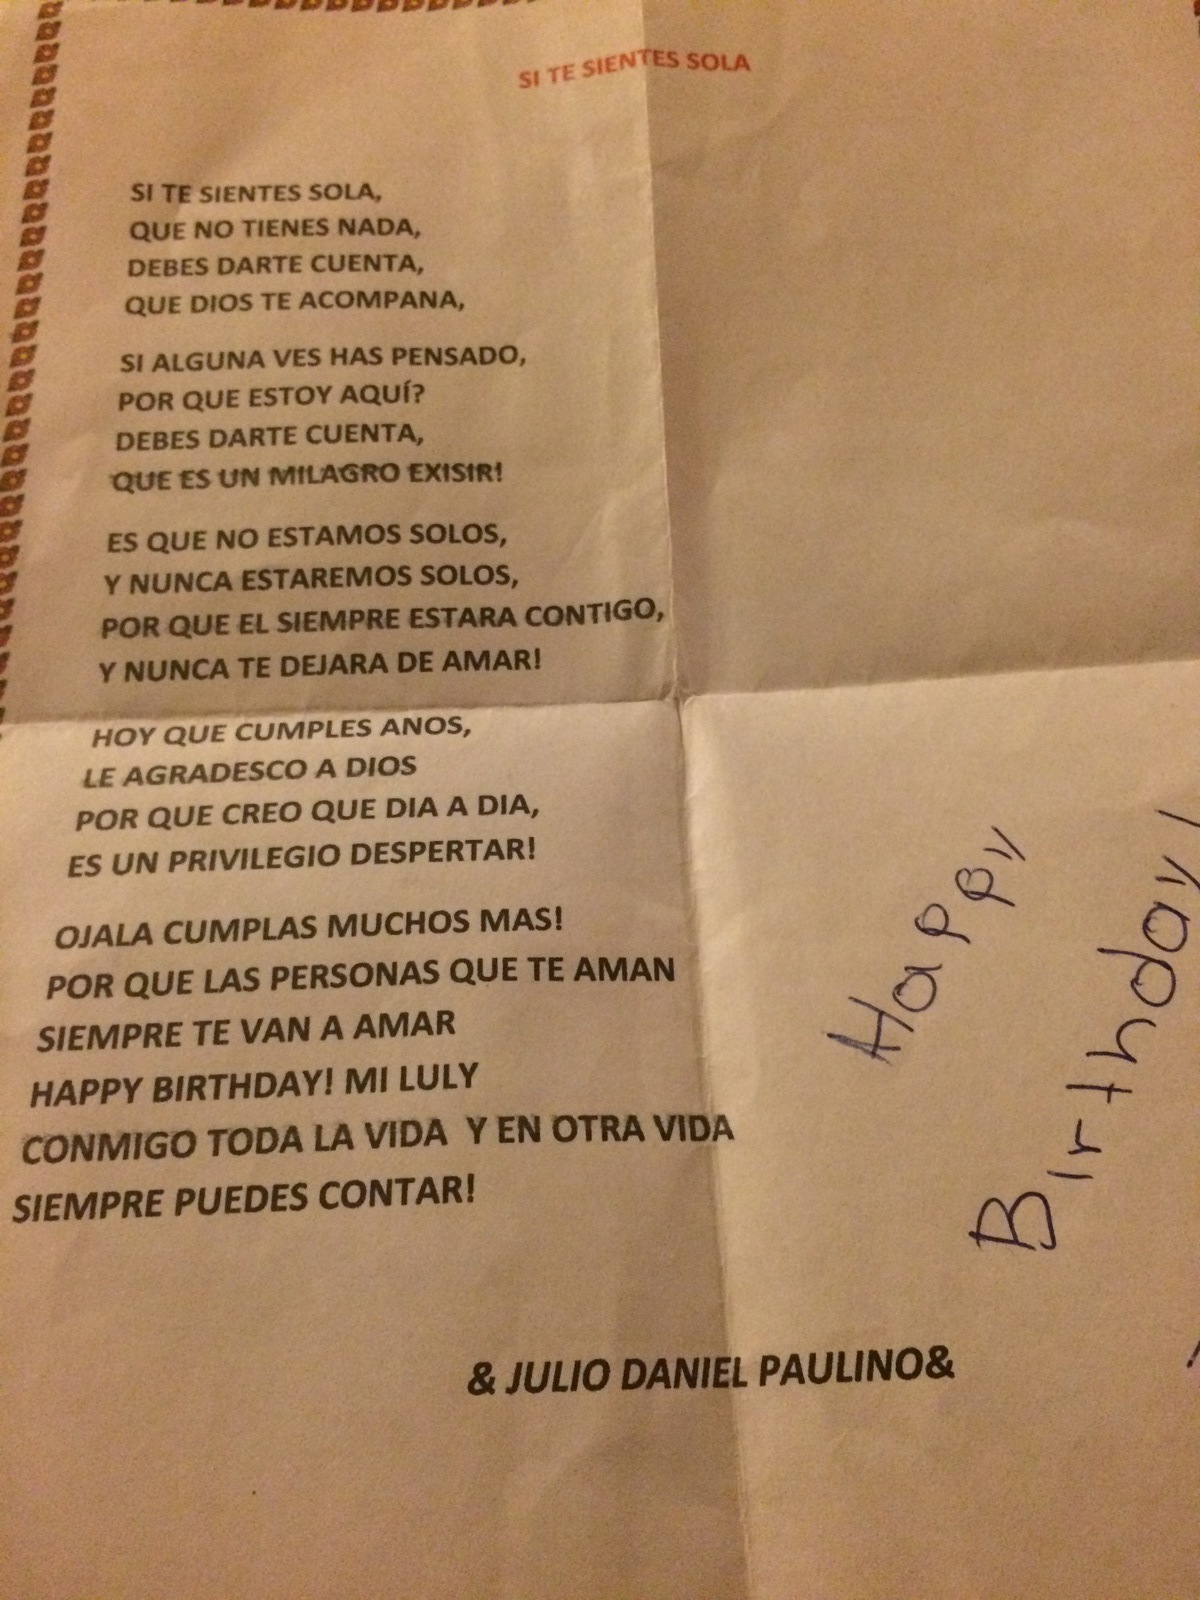 SI TE SIENTES SOLA
SI TE SIENTES SOLA,
QUE NO TIENES NADA,
DEBES DARTE CUENTA,
QUE DIOS TE ACOMPANA,
SI ALGUNA VES HAS PENSADO,
POR QUE ESTOY AQUÍ?
DEBES DARTE CUENTA,
QUE ES UN MILAGRO EXISIR!
ES QUE NO ESTAMOS SOLOS,
Y NUNCA ESTAREMOS SOLOS,
POR QUE EL SIEMPRE ESTARA CONTIGO,
Y NUNCA TE DEJARA DE AMAR!
HOY QUE CUMPLES ANOS,
LE AGRADESCO A DIOS
POR QUE CREO QUE DIA A DIA,
ES UN PRIVILEGIO DESPERTAR!
OJALA CUMPLAS MUCHOS MAS!
POR QUE LAS PERSONAS QUE TE AMAN
SIEMPRE TE VAN A AMAR
HAPPY BIRTHDAY! MI LULY
CONMIGO TODA LA VIDA Y EN OTRA VIDA
SIEMPRE PUEDES CONTAR!
& JULIO DANIEL PAULINO&
Happy
Birthday!